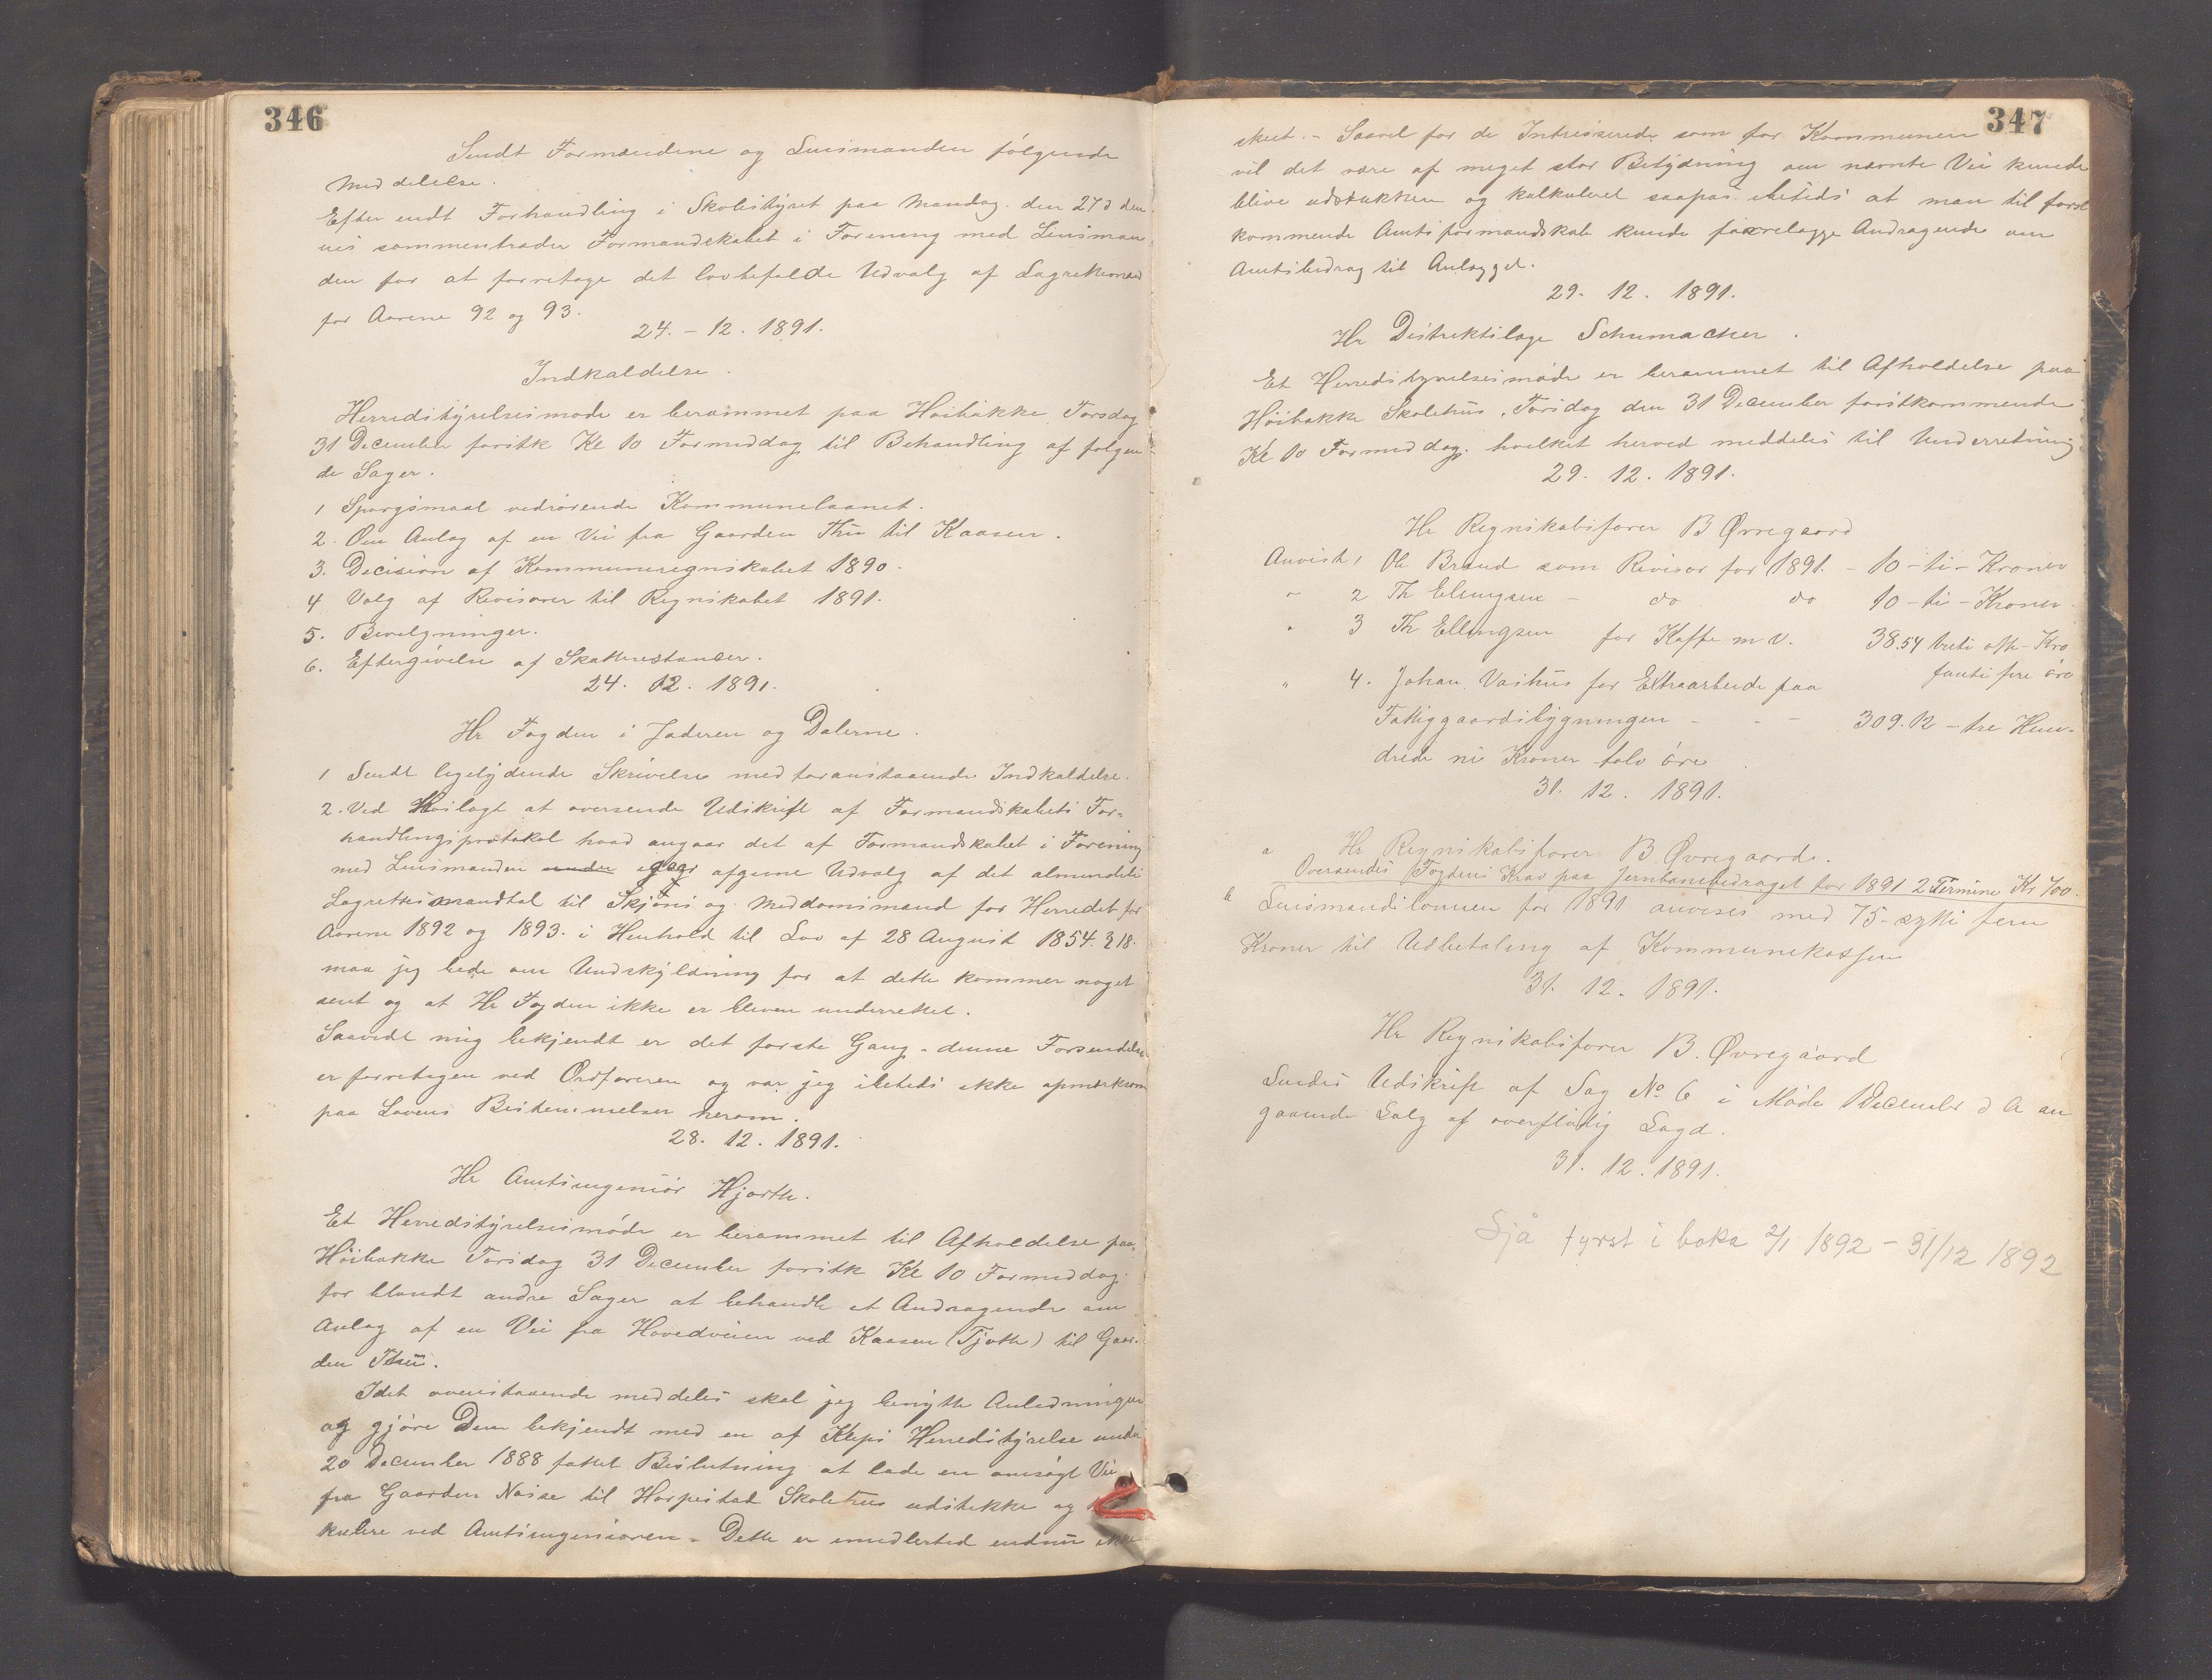 346
Sendt Formændene og Lensmanden følgende
Meddelelse.
Efter endt Forhandling i Skolestyret paa Mandag den 27 d den-
nes sammentræder Formandskabet i Forening med Lensman-
den for at foretage det lovbefalde Udvalg af Lagrettemænd
for Aarene 92 og 93.
24. - 12. 1891.
Indkaldelse.
Herredstyrelsesmøde er berammet paa Høibakke Torsdag
31 December førstk Kl 10 Formiddag til Behandling af følgen-
de Sager.
1 Spørgsmaal vedrørende Kommunelaanet.
2. Om Anlæg af en Vei fra Gaarden Thu til Kaasen.
3. Decision af Kommuneregnskabet 1890.
4 Valg af Revisorer til Regnskabet 1891.
5. Bevilgninger.
6. Eftergivelse af Skatterestancer.
24. 12. 1891.
Hr Fogden i Jæderen og Dalerne.
1 Sendt ligelydende Skrivelse med foranstaaende Indkaldelse.
2. Ved Hoslagt at oversende Udskrift af Formandskabets For-
handlingsprotokol hvad angaar det af Formandskabet i Forening
med Lensmanden under afgivne Udvalg af det almindeli
Lagrettesmandtal til Skjøns og Meddomsmænd for Herredet for
Aarene 1892 og 1893. i Henhold til Lov af 28 August 1854. § 18.
maa jeg bede om Undskyldning for at dette kommer noget
sent og at Hr Fogden ikke er bleven underrettet.
Saavidt mig bekjendt er det første Gang denne Forsendelse
er foretagen ved Ordføreren og var jeg iletids ikke opmærksom
paa Lovens Bestemmelser herom.
28. 12. 1891.
Hr Amtsingeniør Hjorth.
Et Herredstyrelsesmøde er berammet til Afholdelse paa
Høibakke Torsdag 31 December førstk Kl 10 Formiddag
for blandt andre Sager at behandle et Andragende om
Anlæg af en Vei fra Hovedveien ved Kaasen (Tjøtte) til Gaar-
den Thu.
Idet ovenstaaende meddeles skal jeg benytte Anledningen
og gjøre Dem bekjendt med en af Kleps Herredstyrelse under
20 December 1888 fattet Beslutning at lade en ansøgt Vei
fra Gaarden Næise til Horpestad Skolehus udstikke og
kulere ved Amtsingeniøren. Dette er imidlertid endnu ikke
347
skeet. - Saavel for de Intreserede som for Kommunen
vil det være af meget stor Betydning om nævnte Vei kunde
blive udstukken og kalkuleret saapas iletids at man til først
kommende Amtsformandskab kunde forelægge Andragende om
Amtsbidrag til Anlægget.
29. 12. 1891.
Hr Distriktslæge Schumacher.
Et Herredstyrelsesmøde er berammet til Afholdelse paa
Høibakke Skolehus, Torsdag den 31 December førstkommende
Kl 10 Formiddag. hvilket herved meddeles til Underretning
29. 12. 1891.
Hr Regnskabsfører B Øvregaard
Anvist 1 Ole Braud som Revisor for 1891. - 10 - ti - Kroner
" 2 Th Elingsen - do do 10 - ti - Kroner.
" 3 Th Ellingsen for Kaffe m v. 38.54 treti otte Kro
femti fire øre
" 4. Johan Vashus for Extraarbeide paa
Fattiggaardsbygningen - - - 309.12 - tre Hun-
drede ni Kroner tolv øre
31. 12. 1891.
a Hr Regnskabsfører B Øvregaard.
Oversendes Fogdens Krav paa Jernbanebidraget for 1891 2 Termine Kr 700.
b Lensmandslønnen for 1891 anvises med 75 - sytti fem
Kroner til Udbetaling af Kommunekassen
31. 12. 1891.
Hr Regnskabsfører B. Øvregaard
Sendes Udskrift af Sag No 6 i Møde December d A an
gaaende Salg af overflødig Lagd.
31. 12. 1891.
Sjå fyrst i boka 2/1 1892 - 31/12 1892